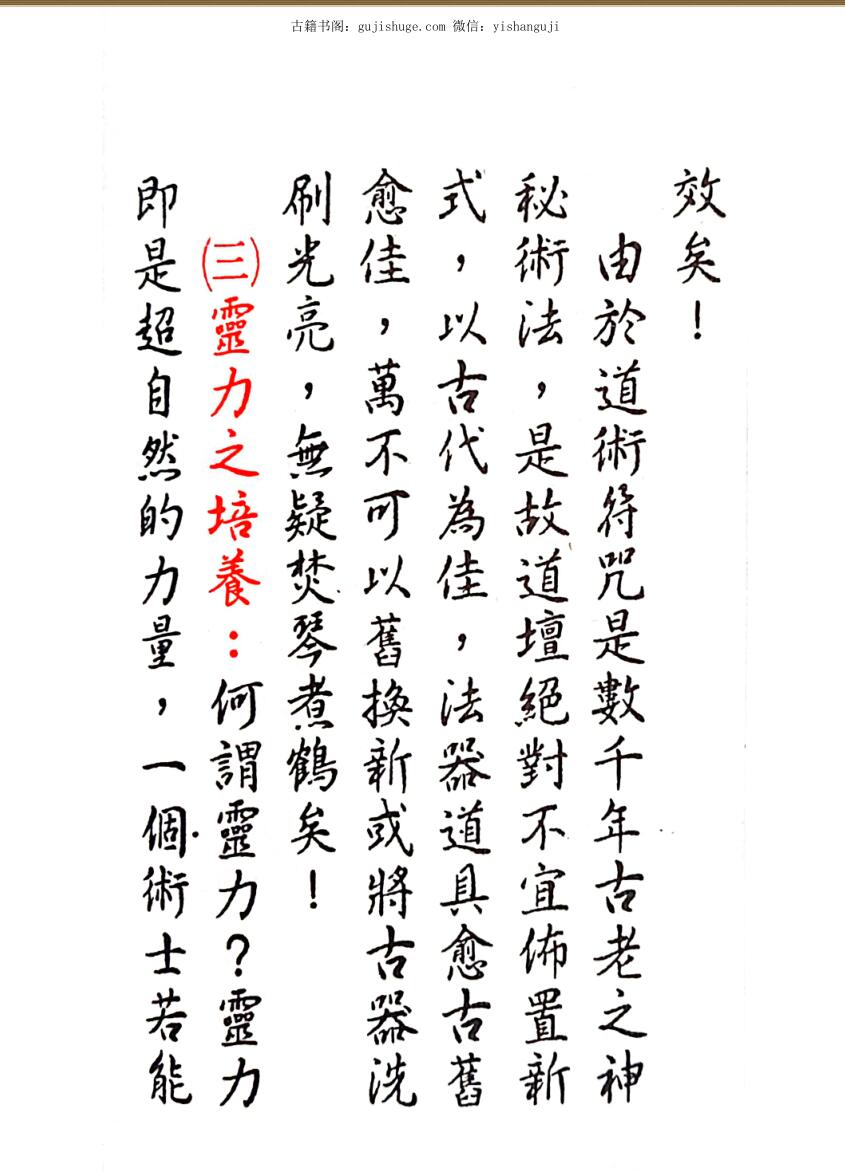 古籍书阁：gujishuge.com 微信：yishanguji
效矣！
由於道術符咒是數千年古老之神
秘術法，是故道壇絕對不宜佈置新
式，以古代為佳，法器道具愈古舊
愈佳，萬不可以舊換新或將古器洗
刷光亮，無疑焚琴煮鶴矣！
㈢靈力之培養：何謂靈力？靈力
即是超自然的力量，一個術士若能